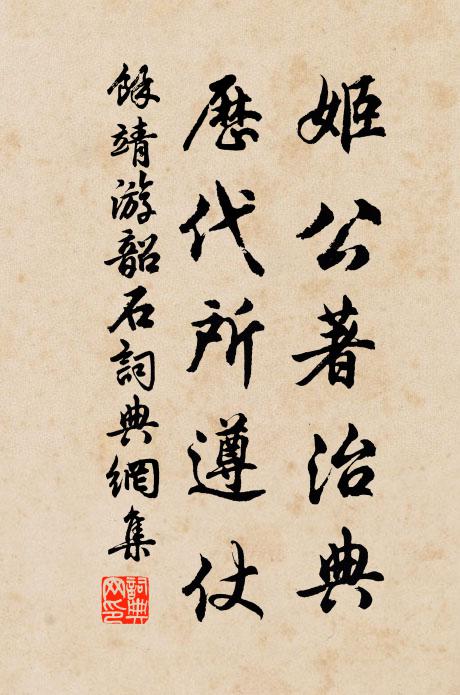 姬公著治典
歷代所遵仗
餘靖游韶石詞典網集
詞典网印